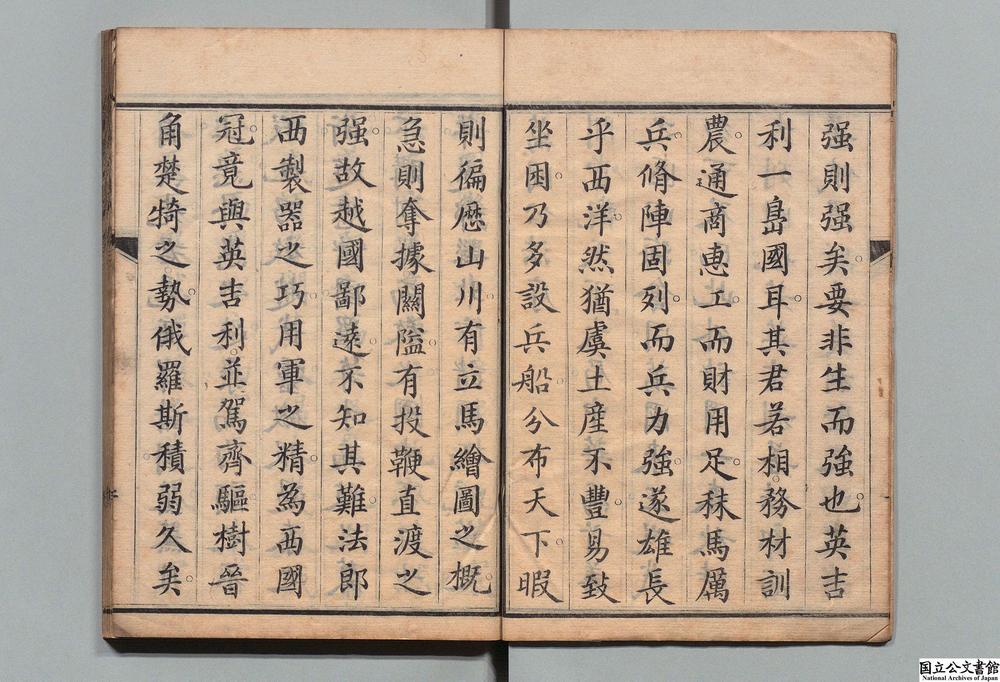 强則强矣。要非生而強也。英吉
利一㠀國耳。其君若相。務材訓
農。通商惠工。而財用足。秣馬厲
兵。脩陣固列。而兵力強。遂雄長
乎西洋。然猶虞土産不豐。易致
坐困。乃多設兵船。分布天下。暇
則徧歷山川。有立馬繪圖之概。
急則奪據關隘。有投鞭直渡之
强。故越國鄙遠。不知其難。法郎
西製器之巧。用軍之精。為西國
冠。竟與英吉利。並駕齊驅。樹晉
角楚犄之勢。俄羅斯積弱久矣。
国立公文書館
National Archives of Japan